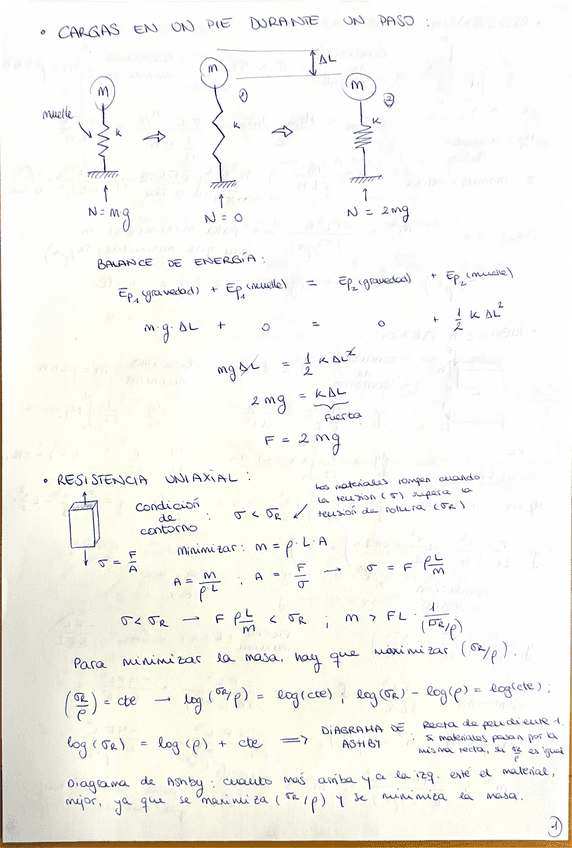 • CARGAS EN UN PIE DURANTE UN PASO:
M M ΔL M
① ②
muelle k k k
N=Mg N=0 N=2mg
BALANCE DE ENERGÍA:
Ep₁(gravedad) + Ep₁(muelle) = Ep₂(gravedad) + Ep₂(muelle)
m·g·ΔL + 0 = 0 + 1/2 k ΔL²
mgΔL = 1/2 k ΔL²
2mg = kΔL
fuerza
F = 2mg
• RESISTENCIA UNIAXIAL:
Condición de contorno : σ < σR
Los materiales rompen cuando
la tensión (σ) supera la
tensión de rotura (σR)
σ = F/A
Minimizar: m = ρ·L·A
A = m/ρ·L ; A = F/σ → σ = F ρL/m
σ < σR → F ρL/m < σR ; m > FL · 1/(σR/ρ)
Para minimizar la masa, hay que maximizar (σR/ρ).
(σR/ρ) = cte → log(σR/ρ) = log(cte) ; log(σR) - log(ρ) = log(cte) ;
log(σR) = log(ρ) + cte ⟹ DIAGRAMA DE ASHBY :
Recta de pendiente 1.
Si materiales pasan por la
misma recta, su σR/ρ es igual
Diagrama de Ashby: cuanto más arriba y a la izq. esté el material,
mejor, ya que se maximiza (σR/ρ) y se minimiza la masa.
1